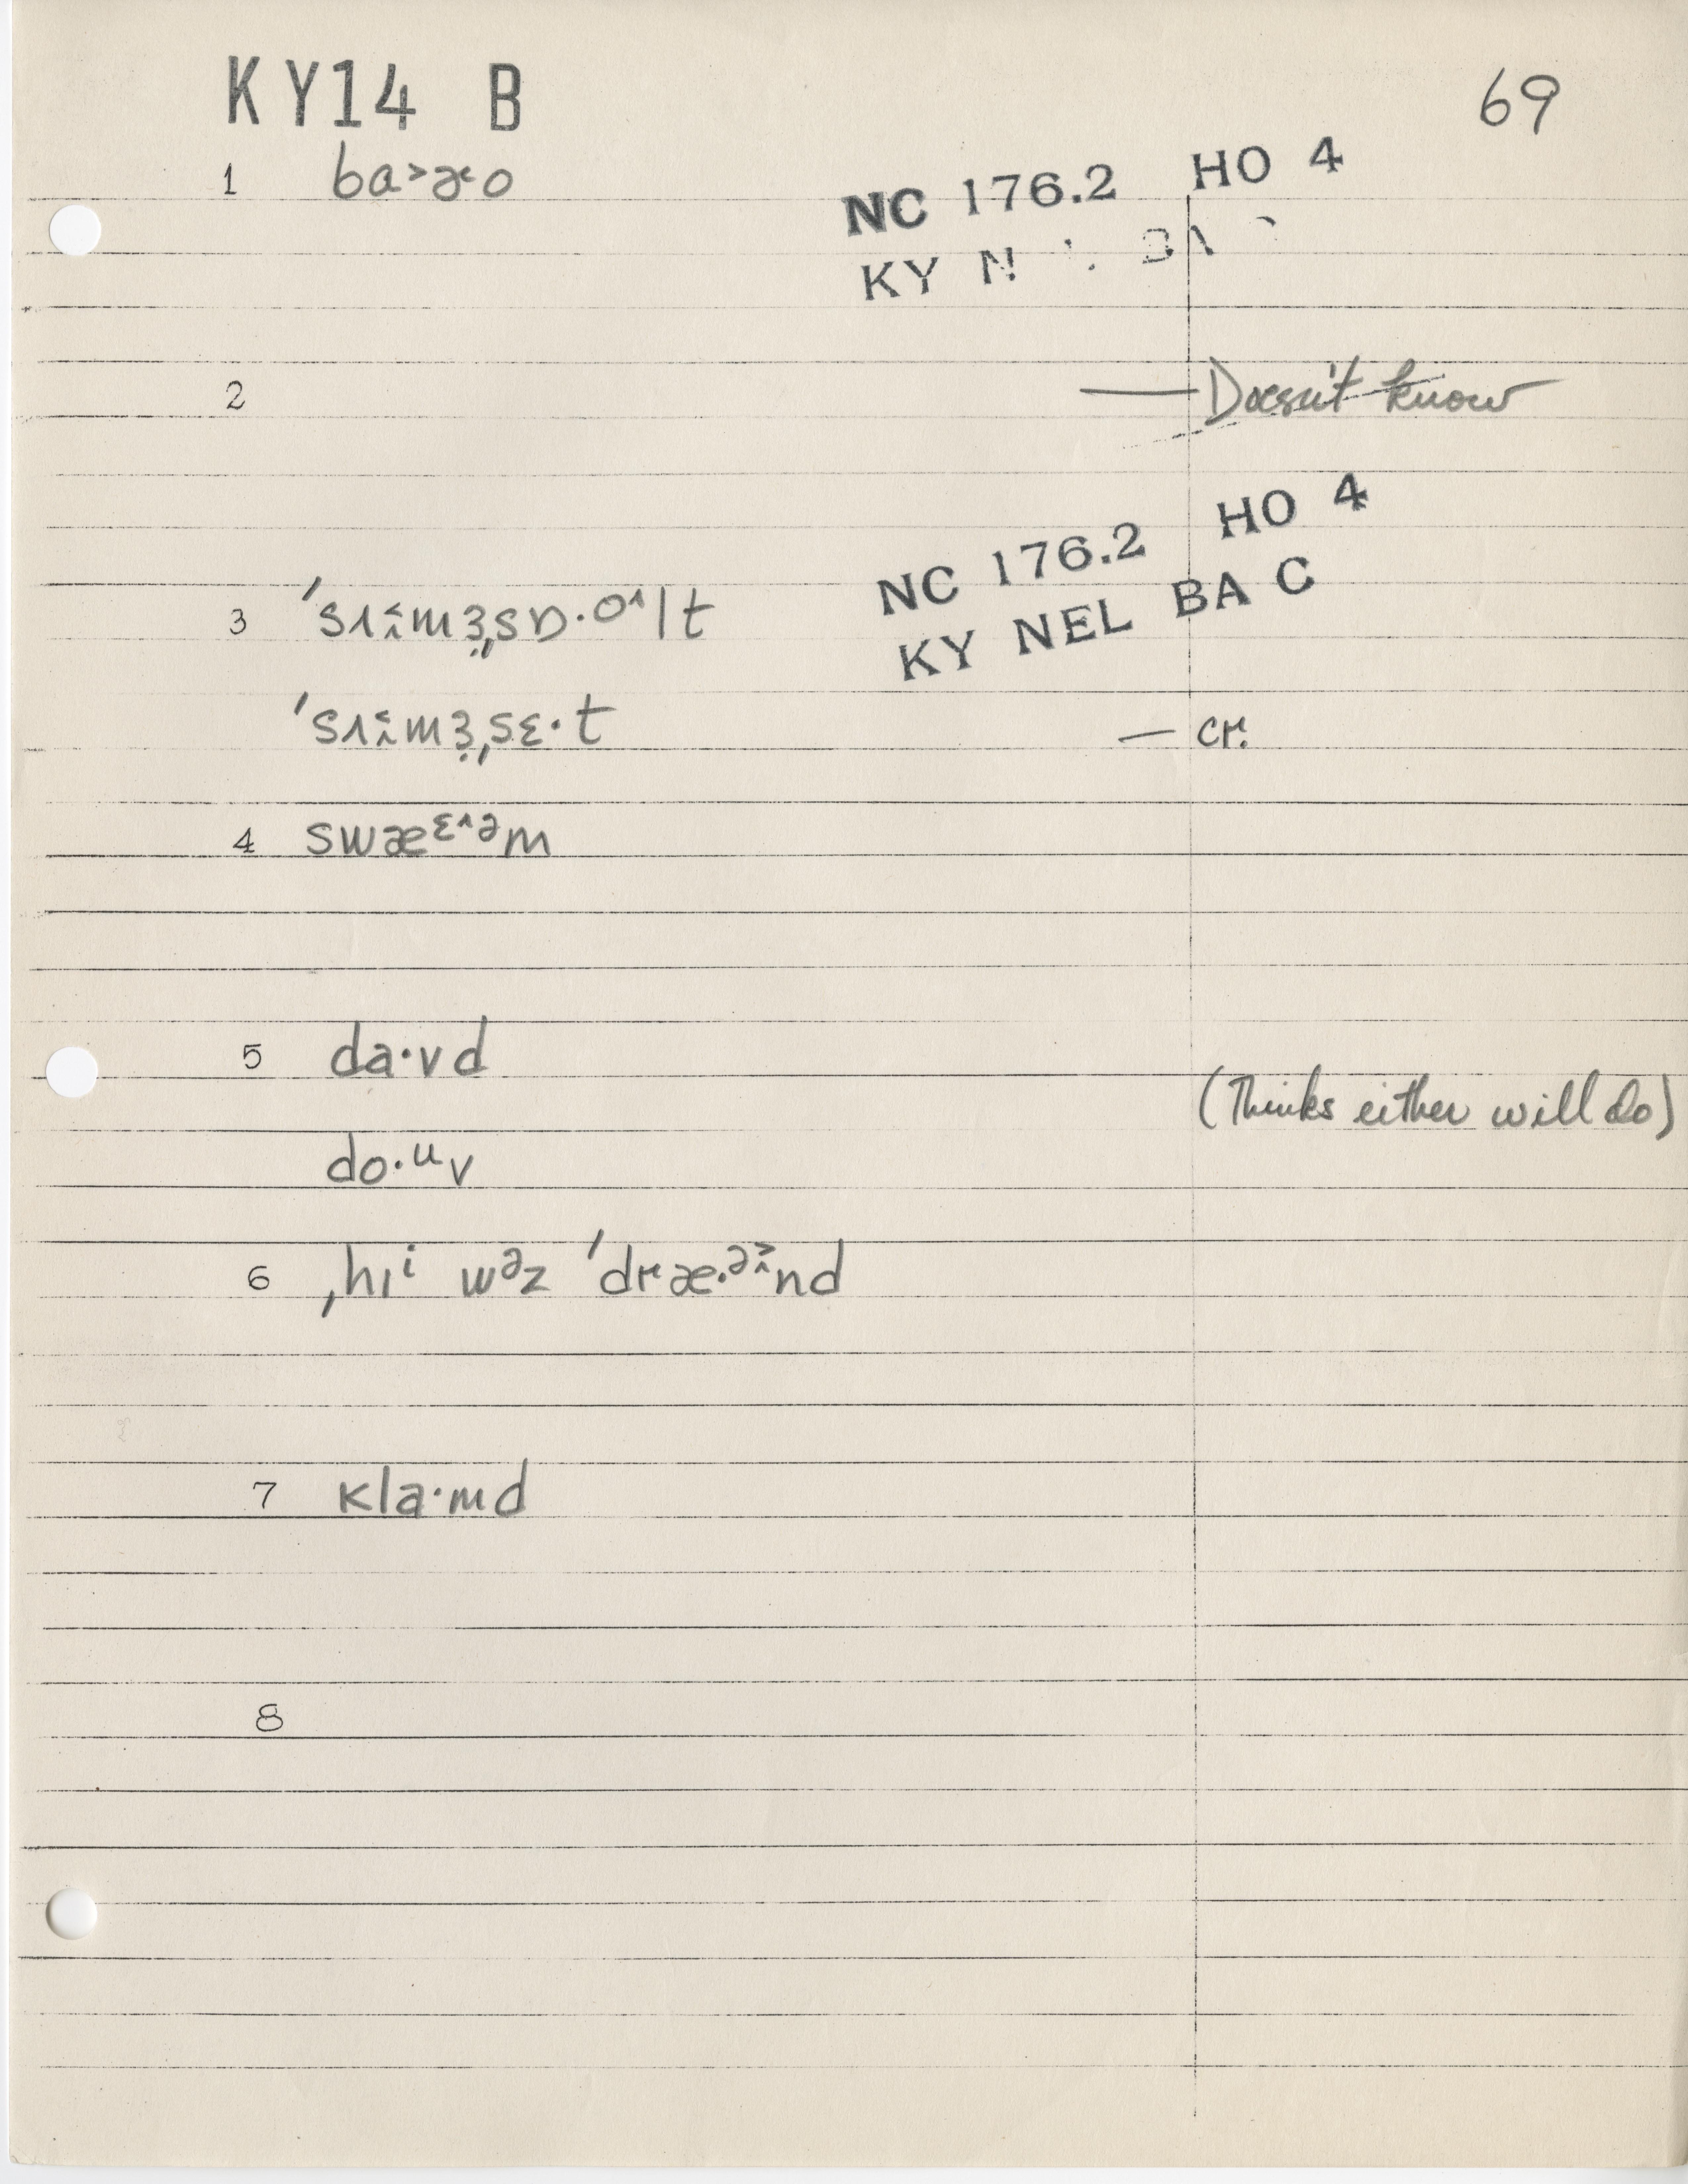 KY14 B
69
1 ba˃ɚo
NC 176.2 HO 4
KY
2 — Doesn't know
3 ˈsʌɪ̂mɜ̣ˌsɒ·o^lt
NC 176.2 HO 4
KY NEL BA C
ˈsʌɪ̂mɜ̣ˌsɛ·t — cr.
4 swæᵋ^ᵊm
5 da·vd
(Thinks either will do)
do·ᵘv
6 ˌhɪⁱ wᵊz ˈdræ·ᵊnd
7 kla·md
8